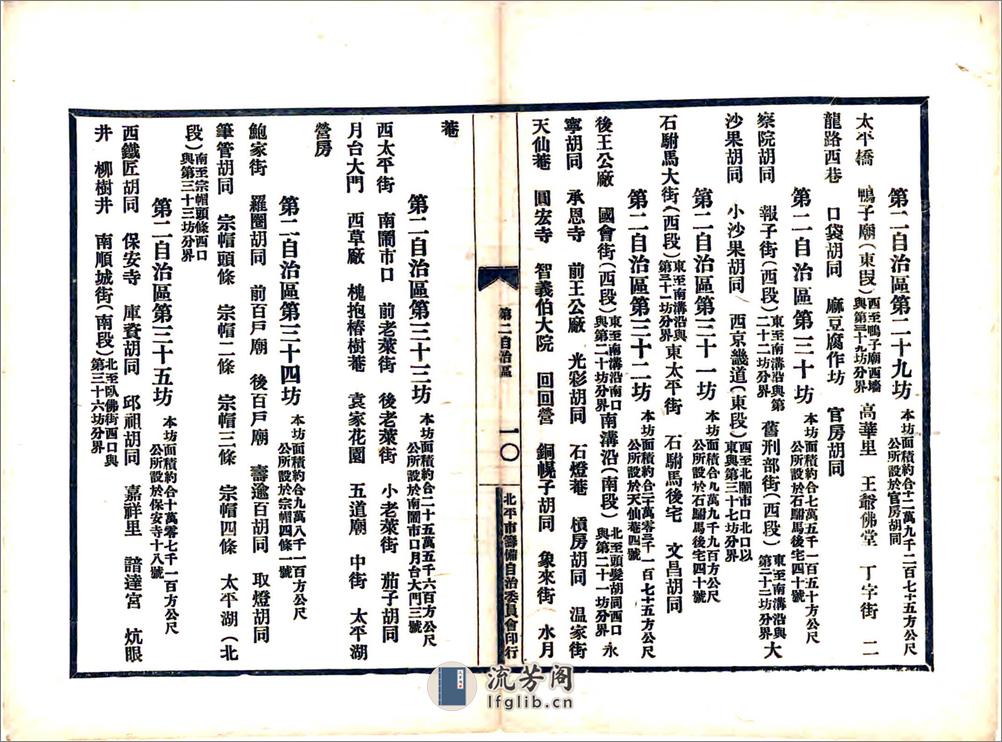 第二自治區第二十九坊 本坊面積約合十二萬九千二百七十五方公尺 公所設於官房胡同
太平橋 鴨子廟(東段)西至鴨子廟西墻 與第三十九坊分界 高華里 王爺佛堂 丁字街 二
龍路西巷 口袋胡同 麻豆腐作坊 官房胡同
第二自治區第三十坊 本坊面積約合七萬五千一百五十方公尺 公所設於石駙馬後宅四十號
察院胡同 報子街(西段)東至南溝沿與第二十二坊分界 舊刑部街(西段)東至南溝沿與第二十二坊分界 大
沙果胡同 小沙果胡同 西京畿道(東段)西至北鬧市口北口以東與第三十七坊分界
第二自治區第三十一坊 本坊面積約合九萬九千九百方公尺 公所設於石駙馬後宅四十號
石駙馬大街(西段)東至南溝沿與第二十一坊分界 東太平街 石駙馬後宅 文昌胡同
第二自治區第三十二坊 本坊面積約合二萬零三千一百七十五方公尺 公所設於天仙菴四號
後王公廠 國會街(西段)東至南溝沿南口與第二十坊分界 南溝沿(南段)北至頭髮胡同西口與第二十一坊分界 永
寧胡同 承恩寺 前王公廠 光彩胡同 石燈菴 槓房胡同 温家街
天仙菴 圓宏寺 智義伯大院 回回營 銅幌子胡同 象來街 水月
第二自治區
一〇
北平市籌備自治委員會印行
菴
第二自治區第三十三坊 本坊面積約合二十五萬五千六百方公尺 公所設於南鬧市口月台大門三號
西太平街 南鬧市口 前老萊街 後老萊街 小老萊街 茄子胡同
月台大門 西草廠 槐抱椿樹菴 袁家花園 五道廟 中街 太平湖
營房
第二自治區第三十四坊 本坊面積約合九萬八千一百方公尺 公所設於宗帽四條一號
鮑家街 羅圈胡同 前百戶廟 後百戶廟 壽逾百胡同 取燈胡同
筆管胡同 宗帽頭條 宗帽二條 宗帽三條 宗帽四條 太平湖(北
段)南至宗帽頭條西口與第三十三坊分界
第二自治區第三十五坊 本坊面積約合十萬零七千一百方公尺 公所設於保安寺十八號
西鐵匠胡同 保安寺 庫資胡同 邱祖胡同 嘉祥里 諳達宮 炕眼
井 柳樹井 南順城街(南段)北至臥佛街西口與第三十六坊分界
流芳阁
lfglib.cn